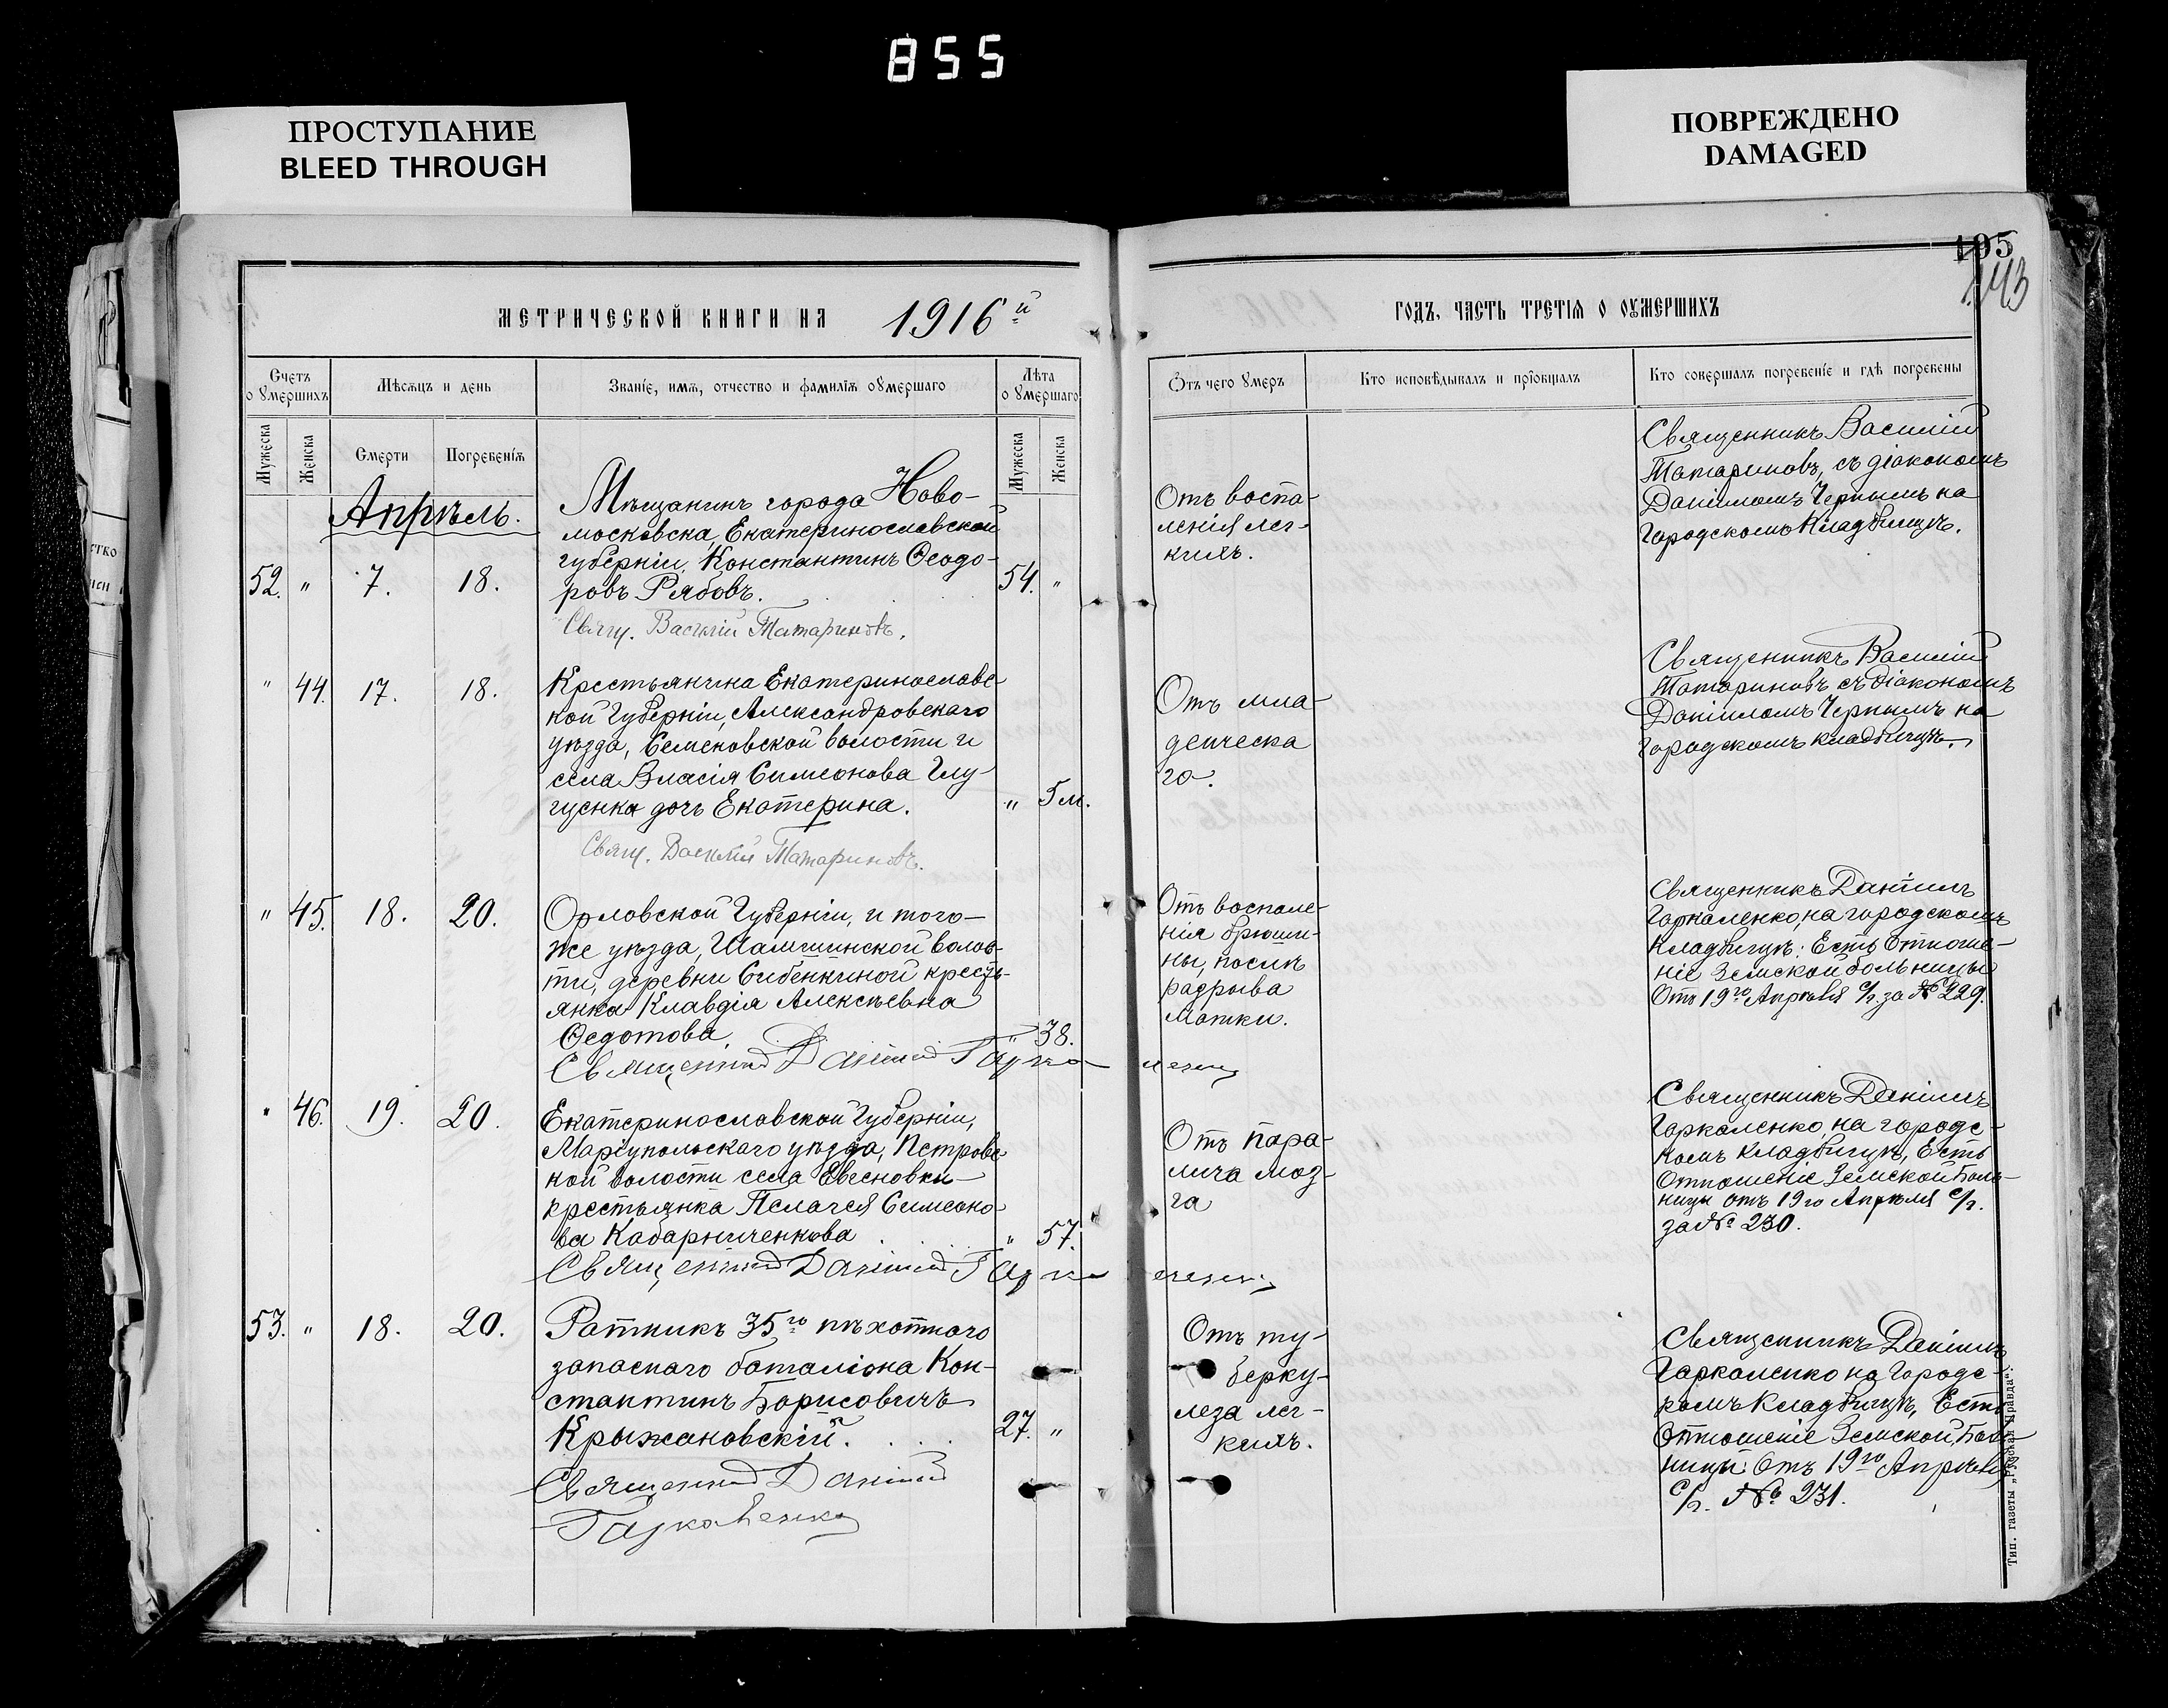 855
ПРОСТУПАНИЕ
BLEED THROUGH
ПОВРЕЖДЕНО
DAMAGED
195
143
МЕТРИЧЕСКОЙ КНИГИ НА 1916й
ГОДЪ, ЧАСТЬ ТРЕТІЯ О ОУМЕРШИХЪ
Счетъ о умершихъ
Мѣсяцъ и день
Званіе, имя, отчество и фамилія оумершаго
Лѣта о умершаго
Отъ чего умеръ
Кто исповѣдывалъ и пріобщалъ
Кто совершалъ погребеніе и гдѣ погребены
Мужеска
Женска
Смерти
Погребенія
Мужеска
Женска
Апрѣль.
52. " 7. 18.
Мѣщанинъ города Ново-
московска, Екатеринославской
губерніи, Константинъ Ѳеодо-
ровъ Рябовъ.
54. "
Свящ. Василій Татариновъ.
Отъ воспа-
ленія лег-
кихъ.
Священникъ Василій
Татариновъ, съ діакономъ
Даніиломъ Чернымъ на
Городскомъ Кладбищѣ.
" 44. 17. 18.
Крестьянина Екатеринославс-
кой Губерніи, Александровскаго
уѣзда, Семеновской волости и
села Власія Симеонова Глу-
щенка дочь Екатерина.
" 5 м.
Свящ. Василій Татариновъ.
Отъ мла-
денческа
го.
Священникъ Василій
Татариновъ съ діакономъ
Даніиломъ Чернымъ на
городскомъ кладбищѣ.
" 45. 18. 20.
Орловской Губерніи, и того-
же уѣзда, Шамшинской волос-
ти, деревни Сибенкиной кресть-
янка Клавдія Алексѣевна
Ѳедотова.
" 38.
Священникъ Даніилъ Гаркаленко
Отъ воспале-
нія брюши-
ны, послѣ
разрыва
матки.
Священникъ Даніилъ
Гаркаленко, на городскомъ
Кладбищѣ. Есть Отноше-
ніе Земской больницы
Отъ 19го Апрѣля с/г. за № 229.
" 46. 19. 20.
Екатеринославской Губерніи,
Маріупольскаго уѣзда, Петровс-
кой волости села Евгеновки
крестьянка Пелагея Симеоно-
ва Кабарниченкова
" 57.
Священникъ Даніилъ Гаркаленко
Отъ пара-
лича моз-
га
Священникъ Даніилъ
Гаркаленко, на городс-
комъ кладбищѣ, Есть
Отношеніе Земской Боль-
ницы отъ 19го Апрѣля с/г.
за № 230.
53. " 18. 20.
Ратникъ 35го пѣхотного
запаснаго баталіона Кон-
стантинъ Борисовичъ
Крыжановскій.
27. "
Священникъ Даніилъ
Гаркаленко
Отъ ту-
берку-
леза лег-
кихъ.
Священникъ Даніилъ
Гаркаленко на Городс-
комъ Кладбищѣ, Есть
Отношеніе Земской Боль-
ницы. Отъ 19го Апрѣля
с/г. № 231.
Тип. газеты „Русская Правда".